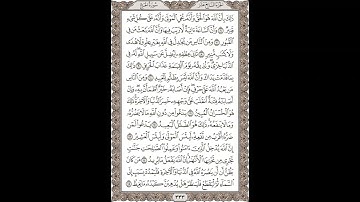 سورة الحج
ذَٰلِكَ بِأَنَّ ٱللَّهَ هُوَ ٱلْحَقُّ وَأَنَّهُۥ يُحْىِ ٱلْمَوْتَىٰ وَأَنَّهُۥ عَلَىٰ كُلِّ شَىْءٍ
قَدِيرٌ ٦ وَأَنَّ ٱلسَّاعَةَ ءَاتِيَةٌ لَّا رَيْبَ فِيهَا وَأَنَّ ٱللَّهَ يَبْعَثُ مَن فِى
ٱلْقُبُورِ ٧ وَمِنَ ٱلنَّاسِ مَن يُجَٰدِلُ فِى ٱللَّهِ بِغَيْرِ عِلْمٍ وَلَا هُدًى
وَلَا كِتَٰبٍ مُّنِيرٍ ٨ ثَانِىَ عِطْفِهِۦ لِيُضِلَّ عَن سَبِيلِ ٱللَّهِ لَهُۥ فِى
ٱلدُّنْيَا خِزْىٌ وَنُذِيقُهُۥ يَوْمَ ٱلْقِيَٰمَةِ عَذَابَ ٱلْحَرِيقِ ٩ ذَٰلِكَ
بِمَا قَدَّمَتْ يَدَاكَ وَأَنَّ ٱللَّهَ لَيْسَ بِظَلَّٰمٍ لِّلْعَبِيدِ ١٠ وَمِنَ ٱلنَّاسِ
مَن يَعْبُدُ ٱللَّهَ عَلَىٰ حَرْفٍ فَإِنْ أَصَابَهُۥ خَيْرٌ ٱطْمَأَنَّ بِهِۦ وَإِنْ
أَصَابَتْهُ فِتْنَةٌ ٱنقَلَبَ عَلَىٰ وَجْهِهِۦ خَسِرَ ٱلدُّنْيَا وَٱلْءَاخِرَةَ ذَٰلِكَ
هُوَ ٱلْخُسْرَانُ ٱلْمُبِينُ ١١ يَدْعُوا۟ مِن دُونِ ٱللَّهِ مَا لَا يَضُرُّهُۥ
وَمَا لَا يَنفَعُهُۥ ذَٰلِكَ هُوَ ٱلضَّلَٰلُ ٱلْبَعِيدُ ١٢ يَدْعُوا۟ لَمَن
ضَرُّهُۥٓ أَقْرَبُ مِن نَّفْعِهِۦ لَبِئْسَ ٱلْمَوْلَىٰ وَلَبِئْسَ ٱلْعَشِيرُ ١٣
إِنَّ ٱللَّهَ يُدْخِلُ ٱلَّذِينَ ءَامَنُوا۟ وَعَمِلُوا۟ ٱلصَّٰلِحَٰتِ جَنَّٰتٍ
تَجْرِى مِن تَحْتِهَا ٱلْأَنْهَٰرُ إِنَّ ٱللَّهَ يَفْعَلُ مَا يُرِيدُ ١٤ مَن كَانَ
يَظُنُّ أَن لَّن يَنصُرَهُ ٱللَّهُ فِى ٱلدُّنْيَا وَٱلْءَاخِرَةِ فَلْيَمْدُدْ بِسَبَبٍ إِلَى
ٱلسَّمَآءِ ثُمَّ لْيَقْطَعْ فَلْيَنظُرْ هَلْ يُذْهِبَنَّ كَيْدُهُۥ مَا يَغِيظُ ١٥
٣٣٣